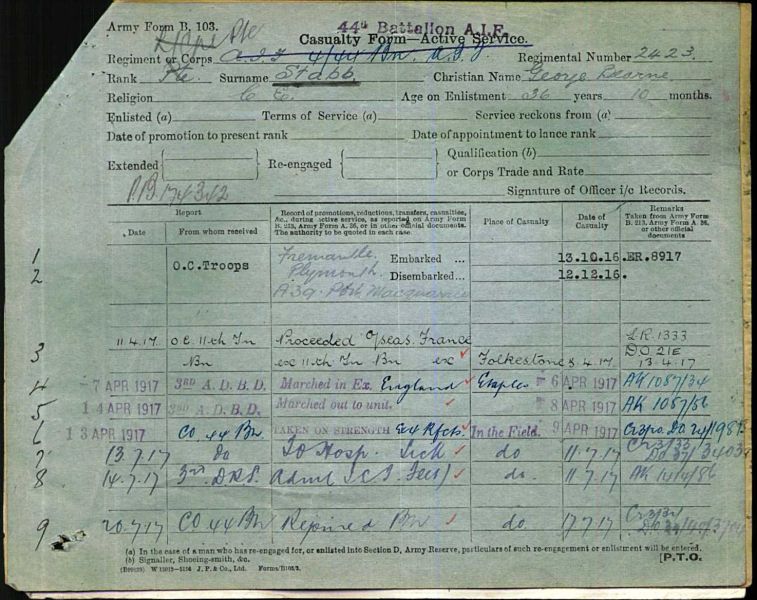 Army Form B. 103. 44th Battalion A.I.F.
Casualty Form—Active Service.
Regiment or Corps A.I.F. 4/44 Bn. A.I.F. Regimental Number 2423.
Rank Pte. Surname Stabb. Christian Name George
Religion C.E. Age on Enlistment 36 years 10 months.
Enlisted (a) Terms of Service (a) Service reckons from (a)
Date of promotion to present rank Date of appointment to lance rank
Extended Re-engaged Qualification (b)
or Corps Trade and Rate
P.B. 174342
Signature of Officer i/c Records.
Report
Date From whom received
Record of promotions, reductions, transfers, casualties, &c., during active service, as reported on Army Form B. 213, Army Form A. 36, or in other official documents. The authority to be quoted in each case.
Place of Casualty
Date of Casualty
Remarks Taken from Army Form B. 213, Army Form A. 36, or other official documents
1 O.C. Troops Fremantle Embarked ... 13.10.16. ER.8917
2 Plymouth. Disembarked... 12.12.16.
A39. Port Macquarie
11.4.17 O.C. 11th Tn Proceeded O/seas. France L.R. 1333
3 Bn ex 11th Tn Bn ex Folkestone 5.4.17 DO 21E
13.4.17
4 -7 APR 1917 3RD A.D.B.D. Marched in Ex. England Etaples 6 APR 1917 AK 1087/34
5 14 APR 1917 3RD A.D.B.D. Marched out to unit. 8 APR 1917 AK 1087/56
6 13 APR 1917 CO 44 Bn TAKEN ON STRENGTH Ex Rfcts. In the Field. 9 APR 1917
7 13.7.17 Do To Hosp. Sick do 11.7.17
8 14.7.17 3rd D.R.S. Admd I.C.T. Feet) do. 11.7.17 AK 1414/86
9 20.7.17 CO 44 Bn Rejoined Bn do 17.7.17
(a) In the case of a man who has re-engaged for, or enlisted into Section D, Army Reserve, particulars of such re-engagement or enlistment will be entered.
(b) Signaller, Shoeing-smith, &c. [P.T.O.
J. P. & Co., Ltd.